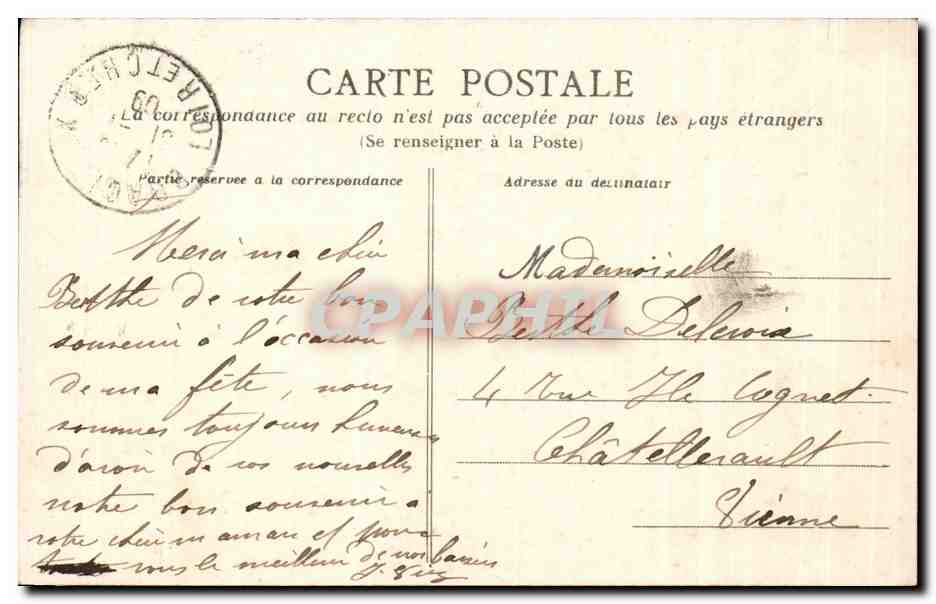 CARTE POSTALE
La correspondance au recto n'est pas acceptée par tous les pays étrangers
(Se renseigner à la Poste)
Partie réservée a la correspondance
Adresse du destinatair
LOIR ET CHER
09
Merci ma chère
Berthe de votre bon
souvenir à l'occasion
de ma fête, nous
sommes toujours heureux
d'avoir de vos nouvelles
notre bon souvenir à
votre chère maman et pour
vous le meilleur de nos baisers
Mademoiselle
Berthe Delcroix
4 rue Cognet
Châtellerault
Vienne
CPAPHIL